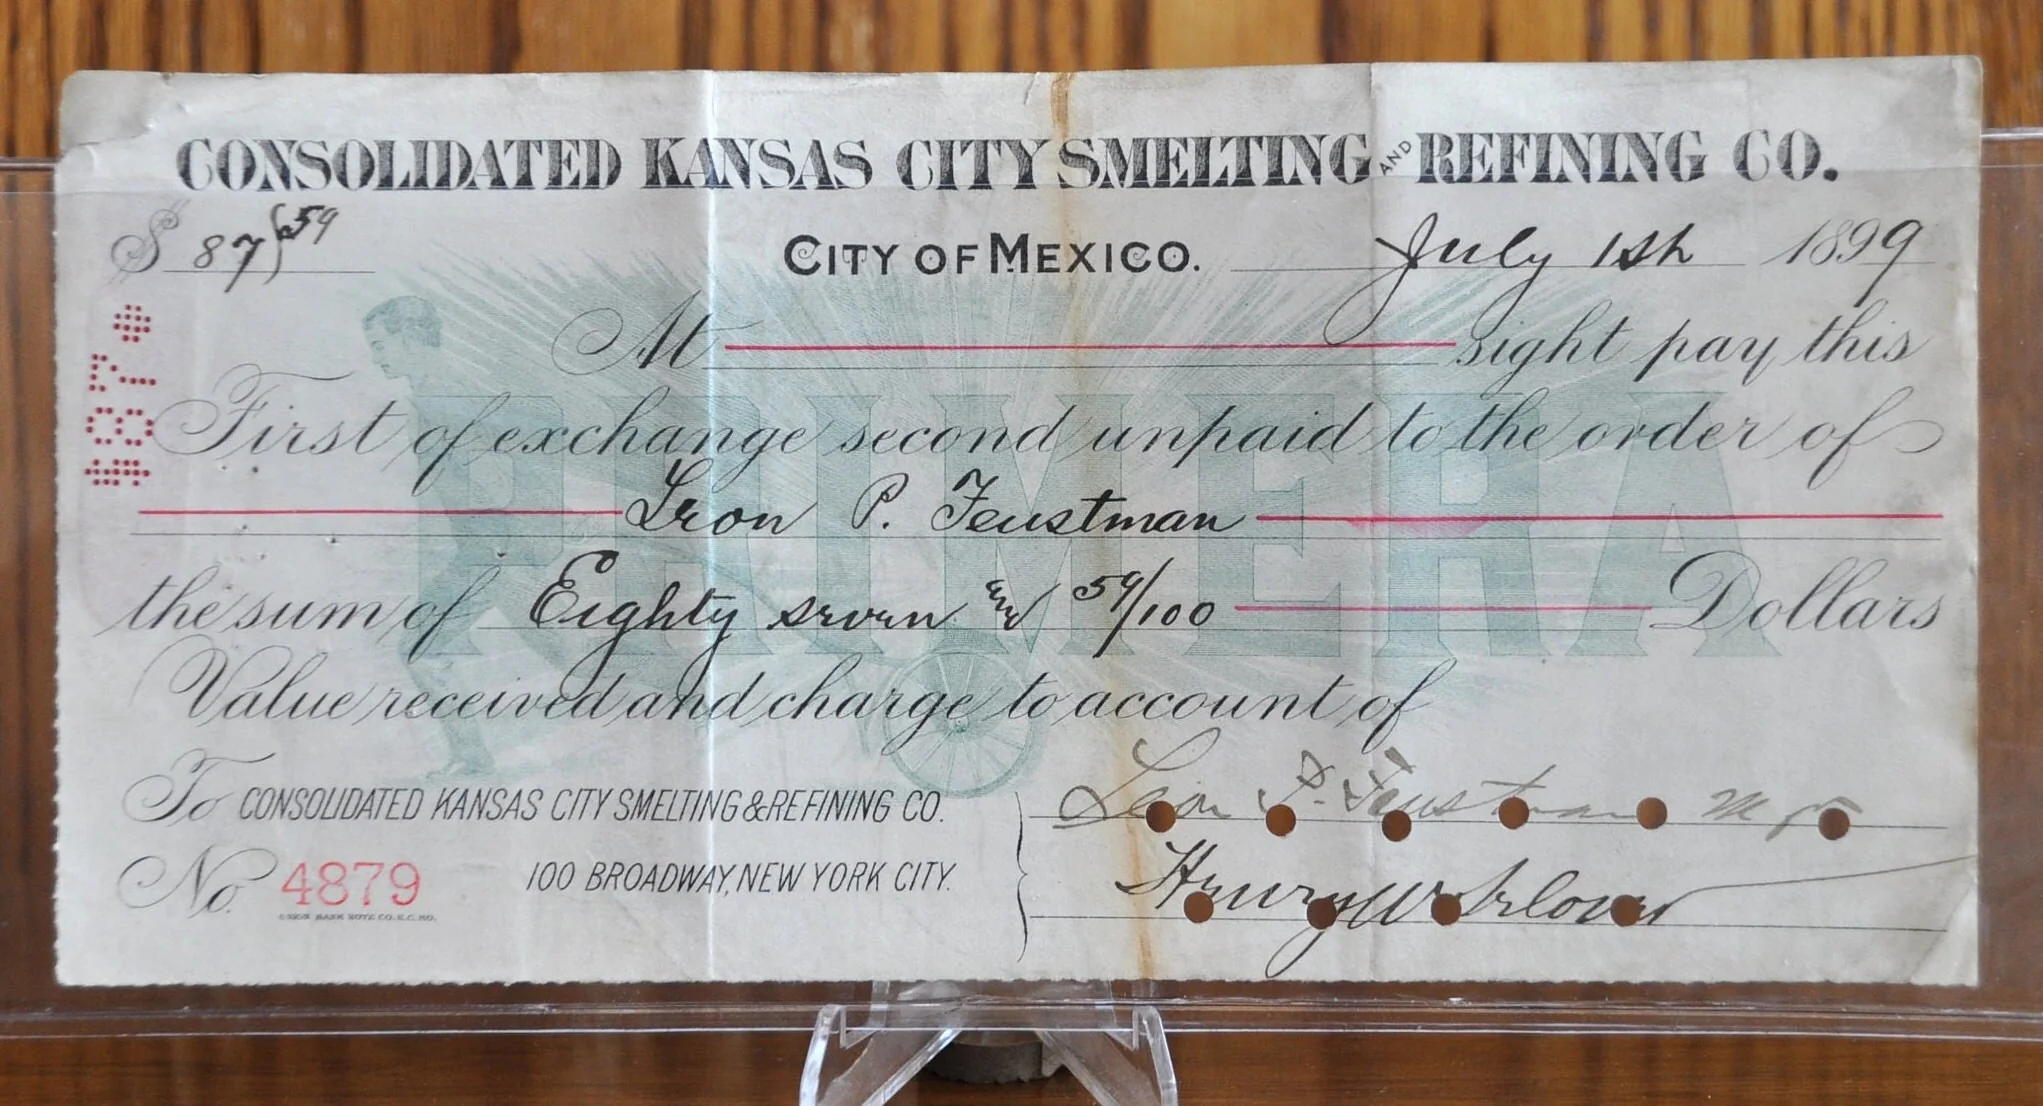 CONSOLIDATED KANSAS CITY SMELTING AND REFINING CO.
$ 87 59
CITY OF MEXICO. July 1st 1899
At sight pay this
$87*
First of exchange second unpaid to the order of
PRIMERA
Leon P. Feustman
the sum of Eighty seven and 59/100 Dollars
Value received and charge to account of
To CONSOLIDATED KANSAS CITY SMELTING & REFINING CO.
Leon P. Feustman
No. 4879 100 BROADWAY, NEW YORK CITY.
UNION BANK NOTE CO. K.C. MO.
Henry W.